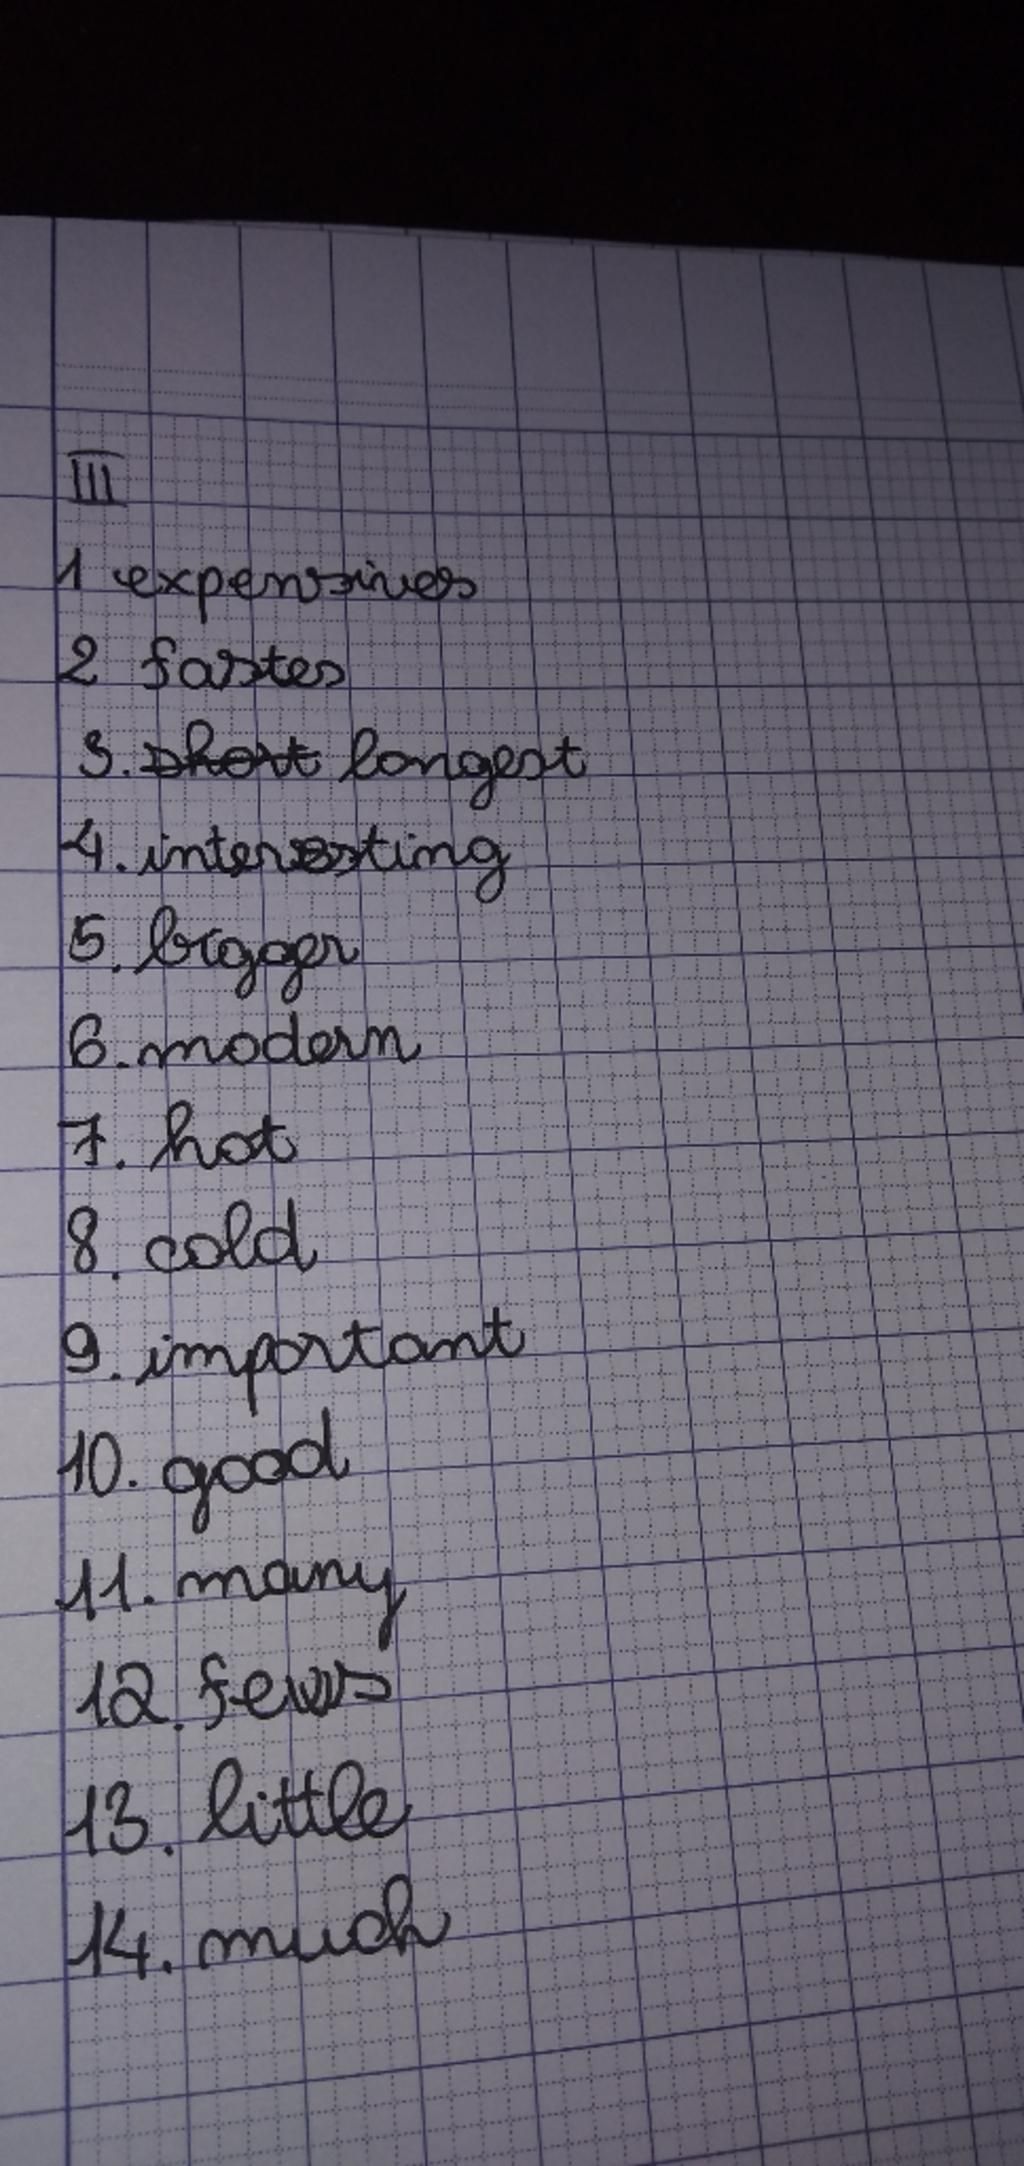 III
1 expensives
2 fastes
3. short longest
4. interesting
5. bigger
6. modern
7. hot
8. cold
9. important
10. good
11. many
12. fews
13. little
14. much